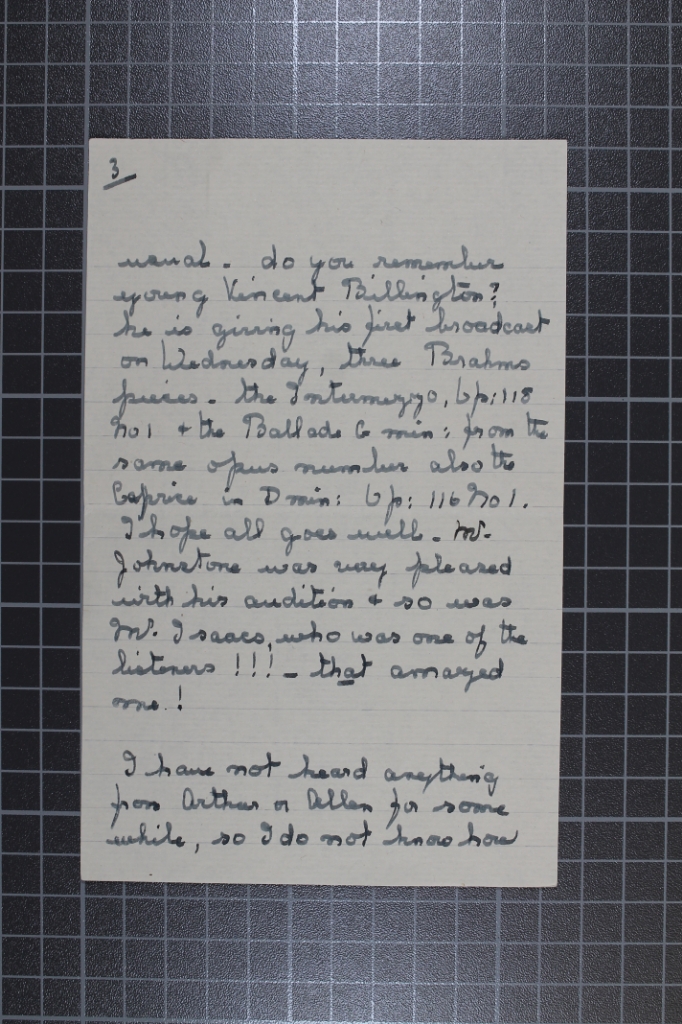 3
usual. do you remember
young Vincent Billington?
he is giving his first broadcast
on Wednesday, three Brahms
pieces. the Intermezzo, Op: 118
No 1 & the Ballade G min: from the
same opus number also the
Caprice in D min: Op: 116 No 1.
I hope all goes well. Mr.
Johnstone was very pleased
with his audition & so was
Mr. Isaacs, who was one of the
listeners !!! - that amazed
me.!
I have not heard anything
from Arthur or Ellen for some
while, so I do not know how